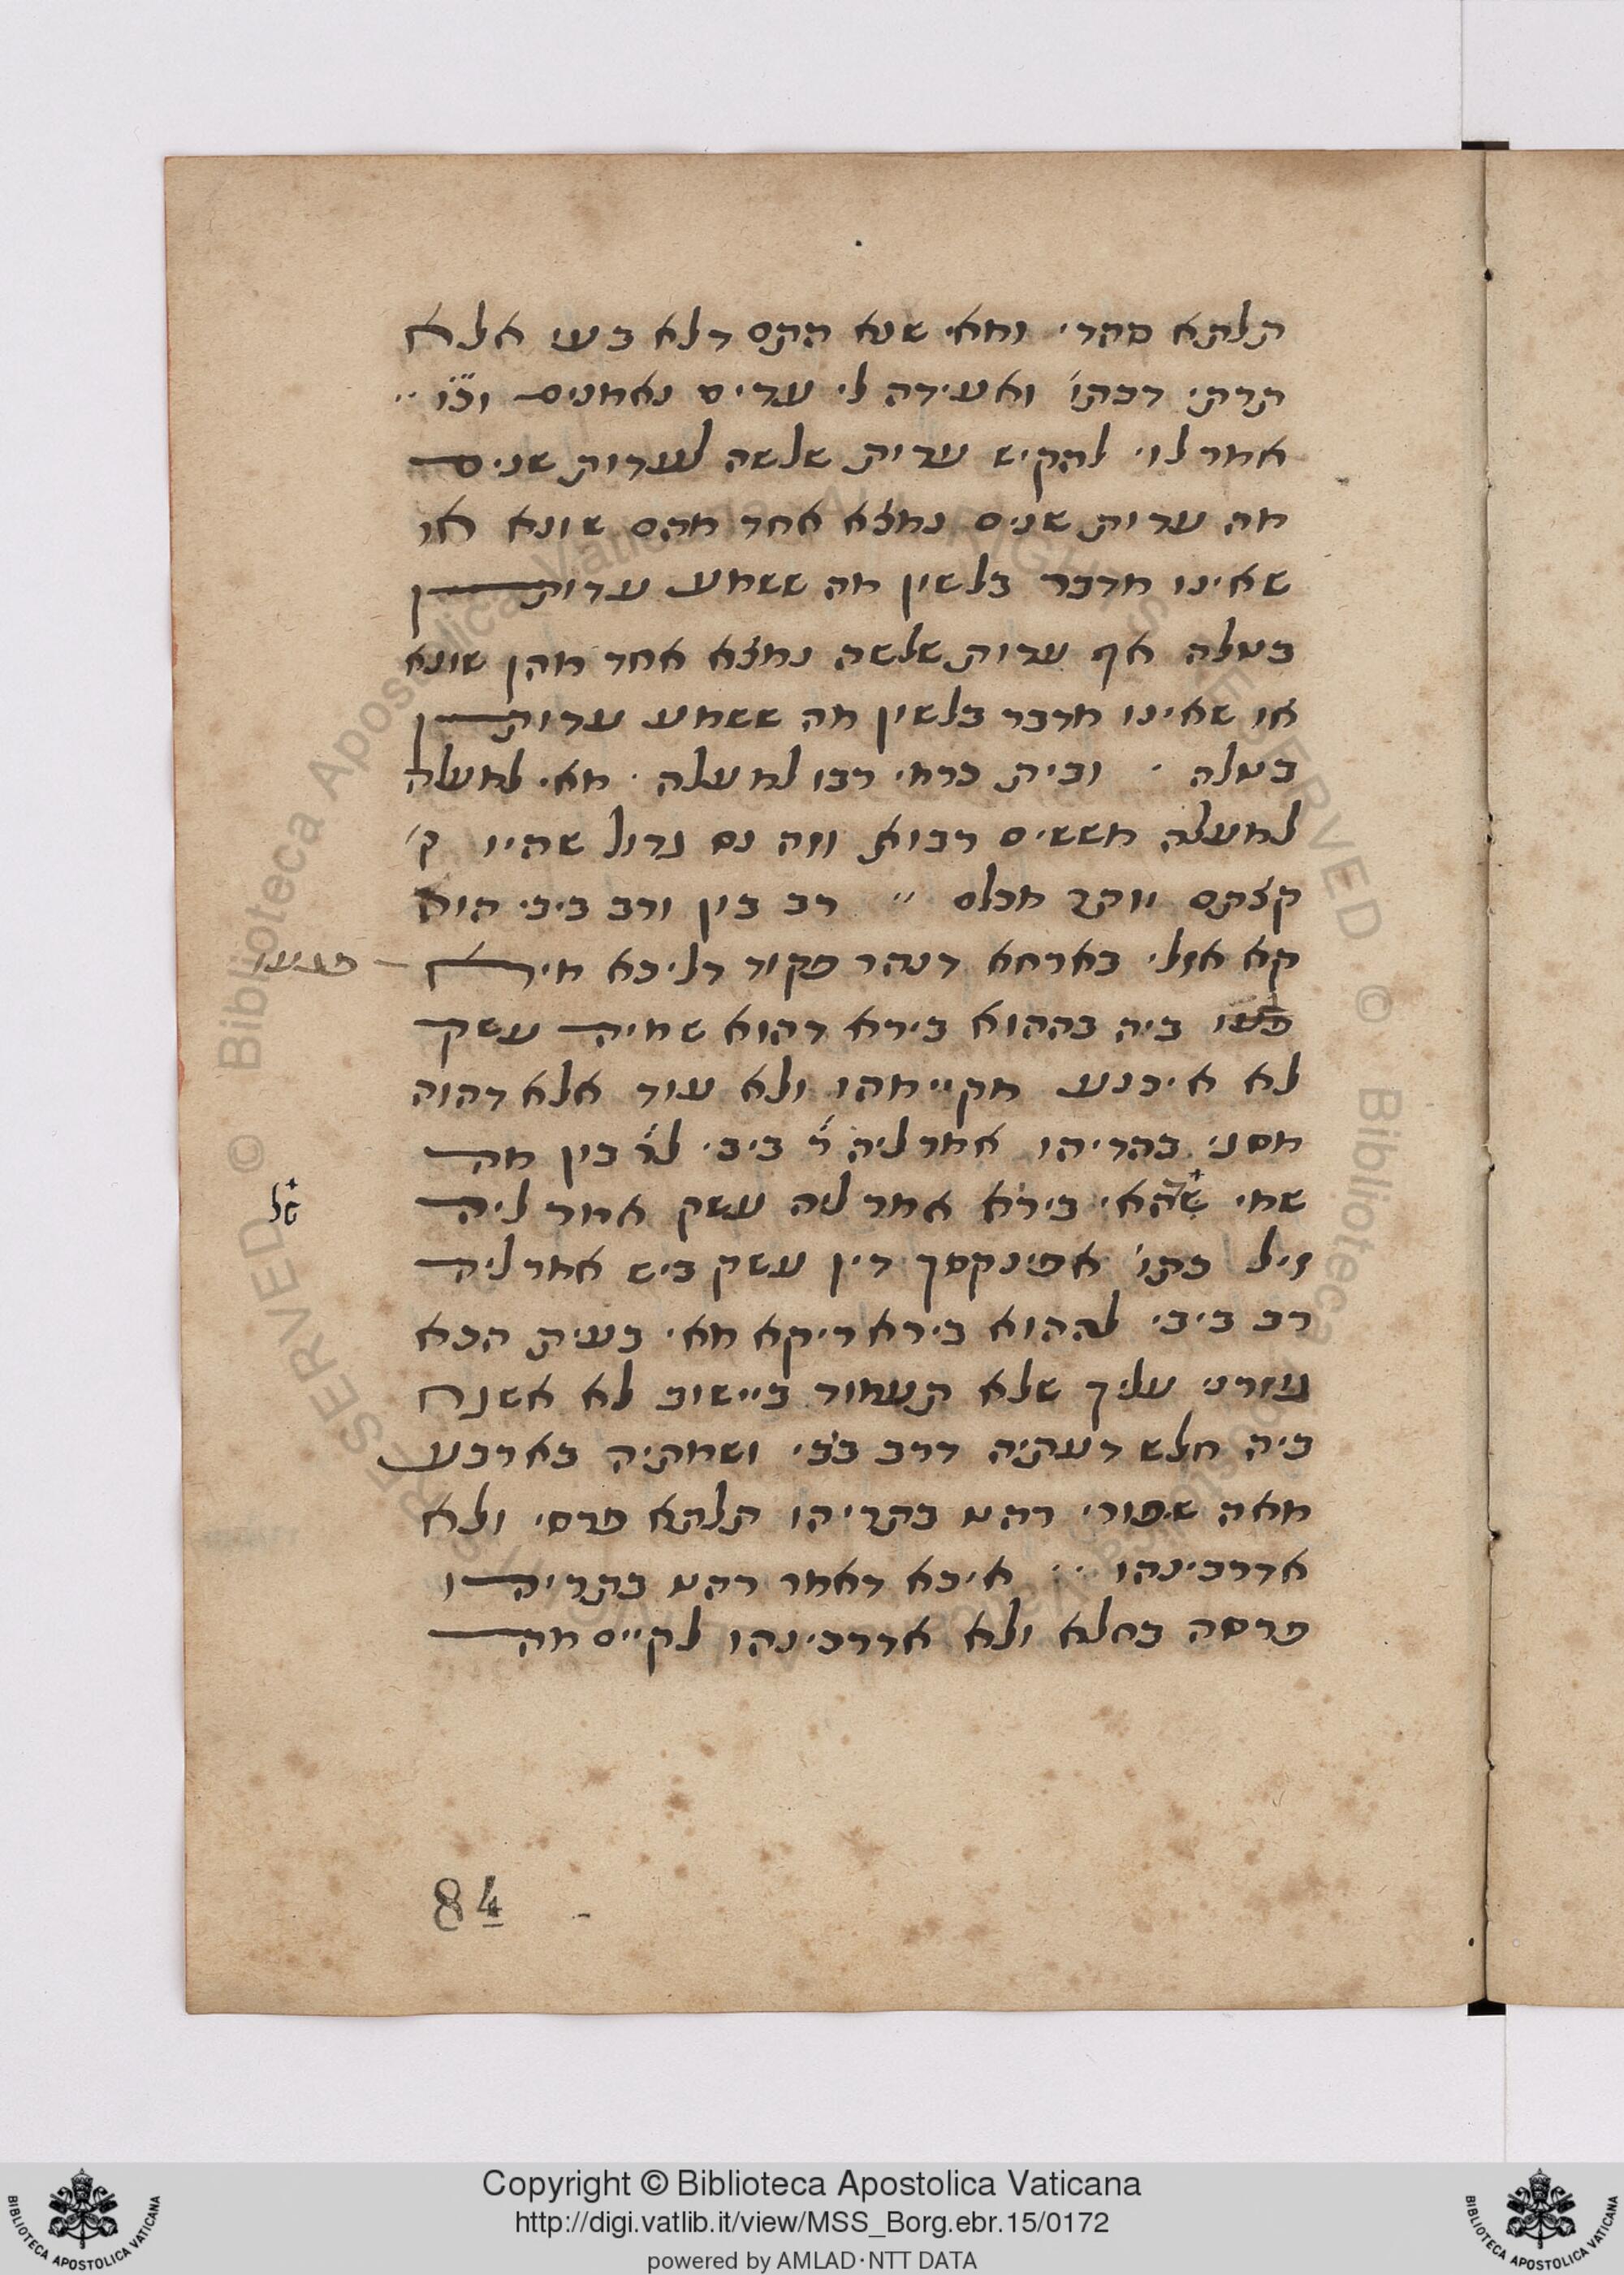 תלתא סהדי ומאי שנא התם דלא בעי אלא
תרתי דכתו׳ ואעידה לי עדים נאמנים וכו׳
אמר לוי להקיש עדות שלשה לעדות שנים
מה עדות שנים נמצא אחד מהם שונא או
שאינו מדבר בלשון מה ששמע עדותן
בטלה אף עדות שלשה נמצא אחד מהן שונא
או שאינו מדבר בלשון מה ששמע עדותן
בטלה וכית כרמי רבו למעלה מאי למעלה
למעלה מששים רבוא וזה נס גדול שהיו ק׳
קצתם יותר מכלם רב בון ורב ביבי הוא
קא אזלי בארחא דנהר פקוד דליכא מירא
ביה בההוא בירא דהוא שמיה עשק
לא איכנע מקיימהו ולא עוד אלא דהוה
מסגי בהדיהו אמר ליה ר׳ ביבי לר׳ בון מה
שמי שהאי בירא אמר ליה עשק אמר ליה
זיל כתו׳ אפינקסך דין עשק ביש אמר ליה
רב ביבי לההוא בירא ריקא מאי בעית הכא
גוזרני עליך שלא תעמוד ביישוב לא אשגח
ביה חלש דעתיה דרב בבי ושמתיה בארבע
מאה שפורי רהט בתריהו תלתא פרסי ולא
אדרבינהו איכא דאמר רהט בתריהו
פרסה בחלא ולא אדרבינהו לקיים מה
84
Copyright © Biblioteca Apostolica Vaticana
http://digi.vatlib.it/view/MSS_Borg.ebr.15/0172
powered by AMLAD·NTT DATA